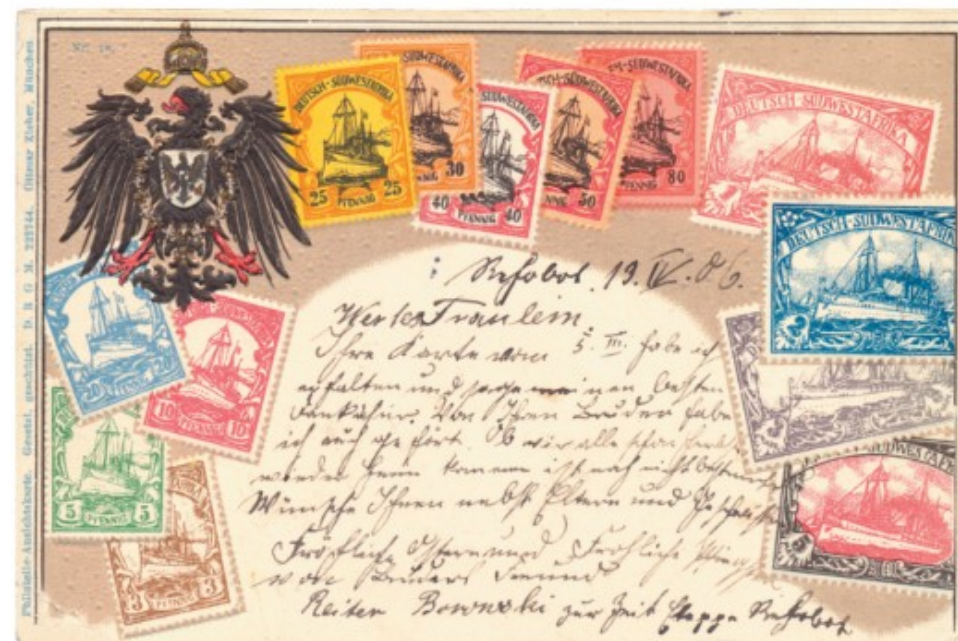 Nr. 18.
Philatelie-Ansichtskarte. Gesetzl. geschützt. D. R. G. M. Ottmar Zieher, München
DEUTSCH-SÜDWESTAFRIKA
25 PFENNIG 25
SÜDWESTAFRIKA
30
SÜDWESTAFRIKA
40 PFENNIG 40
DEUTSCH-SÜDWESTAFRIKA
50
SÜDWESTAFRIKA
PFENNIG 80
DEUTSCH-SÜDWESTAFRIKA
DEUTSCH-SÜDWESTAFRIKA
SÜDWESTAFRIKA
20 PFENNIG 20
10 PFENNIG 10
5 PFENNIG 5
3 PFENNIG 3
Rehobot, 19. IV. 06.
Wertes Fräulein
Ihre Karte vom 5. III. habe ich
erhalten und sage meinen besten
Dank dafür. Von Ihren Bruder habe
ich auch gehört. Ob wir alle schon
wieder kommen ist noch nicht
Wünsche Ihnen nebst Eltern und
Fröhliche Ostern und Fröhliche
von Bruders Freund
Reiter Borowski zur Zeit Etappe Rehobot